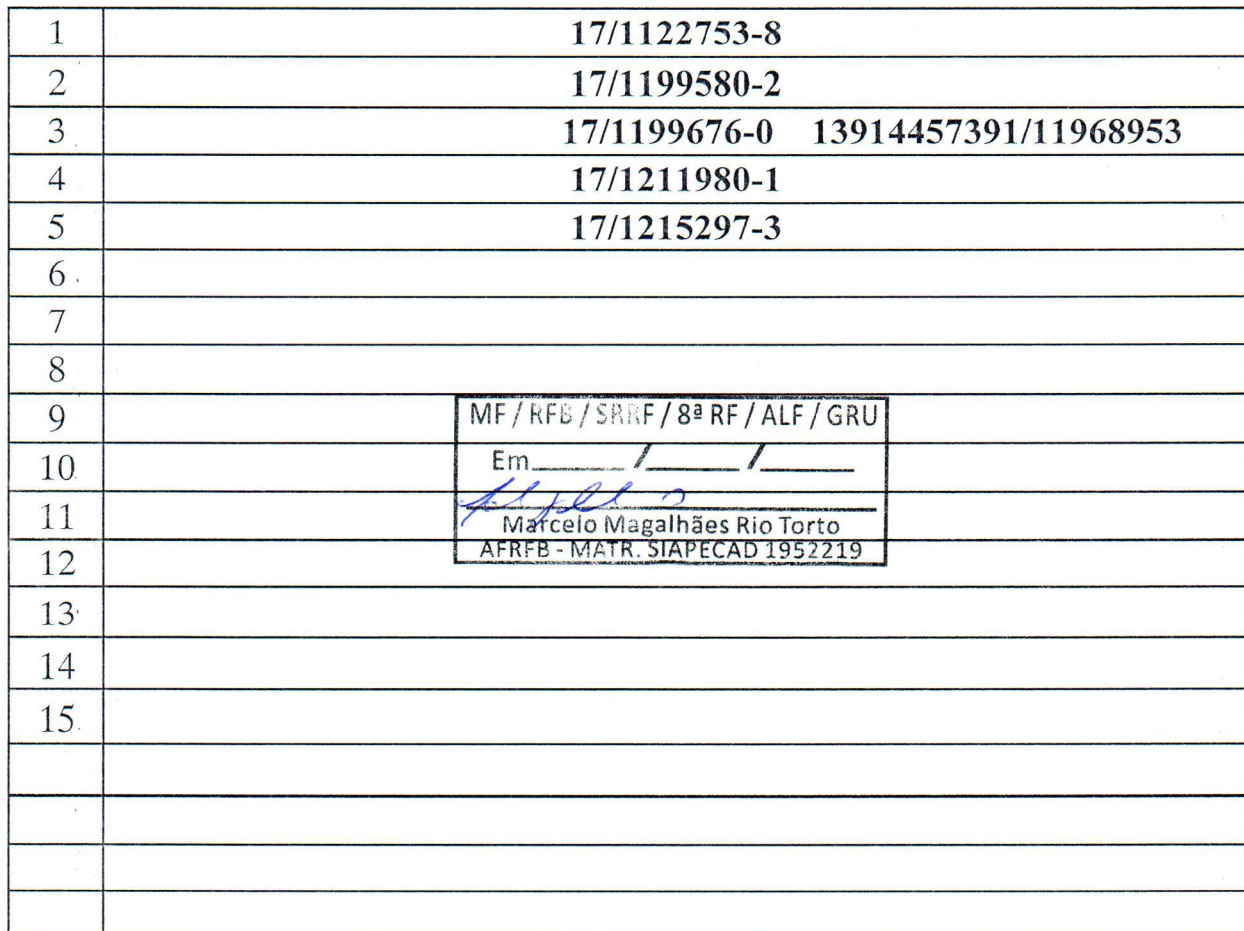 1 17/1122753-8
2 17/1199580-2
3 17/1199676-0 13914457391/11968953
4 17/1211980-1
5 17/1215297-3
6
7
8
9
MF / RFB / SRRF / 8ª RF / ALF / GRU
10
Em______/______/______
11
Marcelo Magalhães Rio Torto
AFRFB - MATR. SIAPECAD 1952219
12
13
14
15